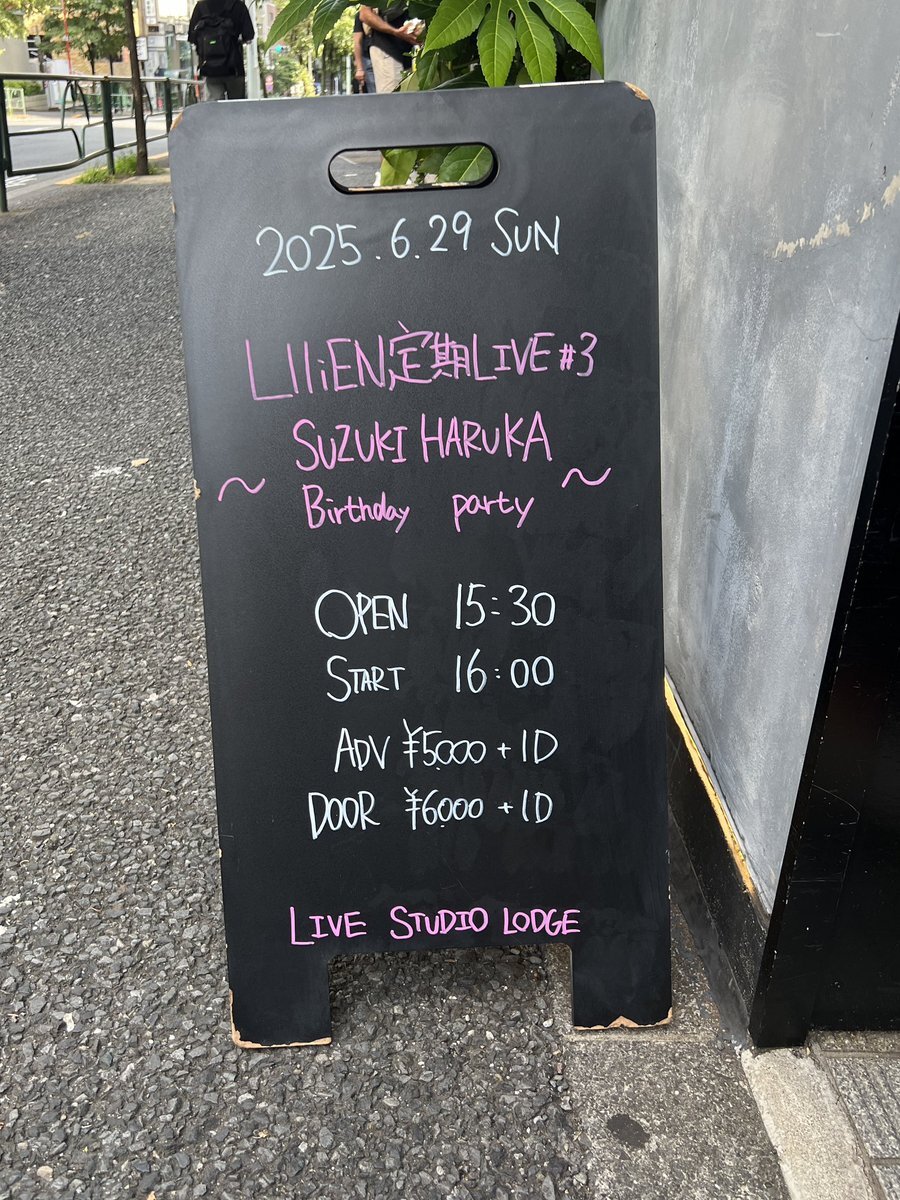 2025.6.29 SUN
LIliEN定期LIVE#3
SUZUKI HARUKA
~ Birthday party ~
OPEN 15:30
START 16:00
ADV ¥5,000 + 1D
DOOR ¥6,000 + 1D
LIVE STUDIO LODGE